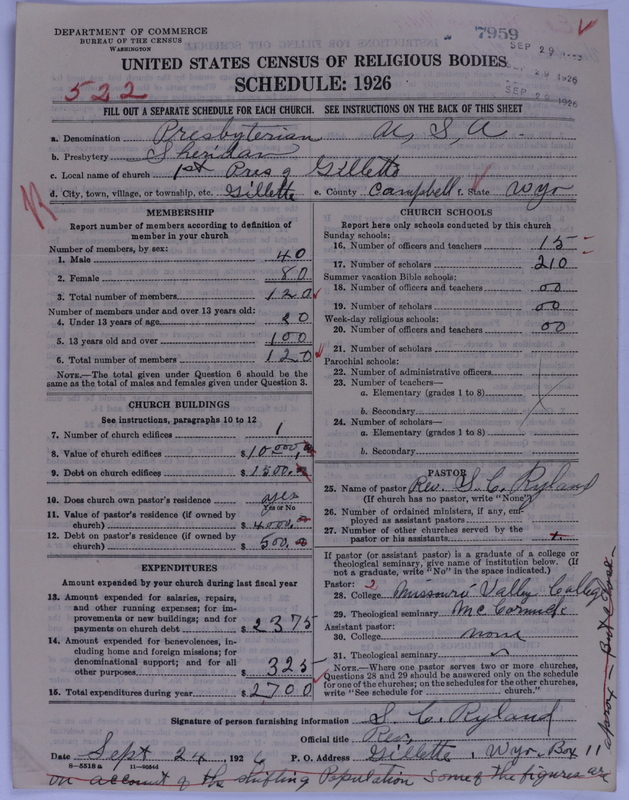 DEPARTMENT OF COMMERCE
BUREAU OF THE CENSUS
WASHINGTON
7959
SEP 29 1926
SEP 29 1926
SEP 29 1926
UNITED STATES CENSUS OF RELIGIOUS BODIES
SCHEDULE: 1926
522
FILL OUT A SEPARATE SCHEDULE FOR EACH CHURCH. SEE INSTRUCTIONS ON THE BACK OF THIS SHEET
a. Denomination Presbyterian U, S, A.
b. Presbytery Sheridan
c. Local name of church 1st Pres of Gillette
d. City, town, village, or township, etc. Gillette e. County Campbell f. State Wyo
MEMBERSHIP
Report number of members according to definition of member in your church
Number of members, by sex:
1. Male 40
2. Female 80
3. Total number of members 120
Number of members under and over 13 years old:
4. Under 13 years of age 20
5. 13 years old and over 100
6. Total number of members 120
NOTE.—The total given under Question 6 should be the same as the total of males and females given under Question 3.
CHURCH BUILDINGS
See instructions, paragraphs 10 to 12
7. Number of church edifices 1
8. Value of church edifices $10000.00
9. Debt on church edifices $1500.00
10. Does church own pastor's residence yes
Yes or No
11. Value of pastor's residence (if owned by church) $4000.00
12. Debt on pastor's residence (if owned by church) $500.00
EXPENDITURES
Amount expended by your church during last fiscal year
13. Amount expended for salaries, repairs, and other running expenses; for improvements or new buildings; and for payments on church debt $2375
14. Amount expended for benevolences, including home and foreign missions; for denominational support; and for all other purposes $325
15. Total expenditures during year $2700
CHURCH SCHOOLS
Report here only schools conducted by this church
Sunday schools:
16. Number of officers and teachers 15
17. Number of scholars 210
Summer vacation Bible schools:
18. Number of officers and teachers 00
19. Number of scholars 00
Week-day religious schools:
20. Number of officers and teachers 00
21. Number of scholars
Parochial schools:
22. Number of administrative officers
23. Number of teachers—
a. Elementary (grades 1 to 8)
b. Secondary
24. Number of scholars—
a. Elementary (grades 1 to 8)
b. Secondary
PASTOR
25. Name of pastor Rev. S. C. Ryland
(If church has no pastor, write "None")
26. Number of ordained ministers, if any, employed as assistant pastors
27. Number of other churches served by the pastor or his assistants
If pastor (or assistant pastor) is a graduate of a college or theological seminary, give name of institution below. (If not a graduate, write "No" in the space indicated.)
Pastor: 2
28. College Missouri Valley College
29. Theological seminary McCormick
Assistant pastor:
30. College none
31. Theological seminary
NOTE.—Where one pastor serves two or more churches, Questions 28 and 29 should be answered only on the schedule for one of the churches; on the schedules for the other churches, write "See schedule for church."
Signature of person furnishing information S. C. Ryland
Official title Rev.
Date Sept 24, 1926 P. O. Address Gillette, Wyo. Box 11
8—5518 a 11—9054d
on account of the shifting Population some of the figures are
approx — But close —